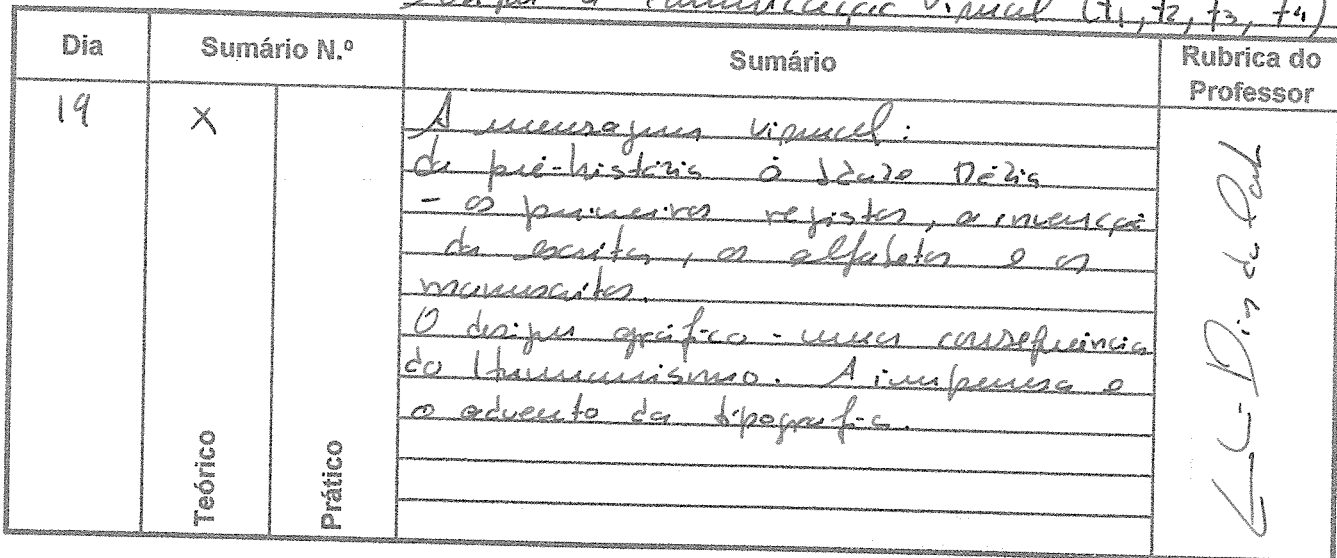 Design e Comunicação Visual (t1, t2, t3, t4)
Dia
Sumário N.º
Sumário
Rubrica do Professor
19
X
Teórico
Prático
A mensagem visual:
da pré-história à Idade Média
- os primeiros registos, a invenção
da escrita, os alfabetos e os
manuscritos.
O design gráfico - uma consequência
do Humanismo. A imprensa e
o advento da tipografia.